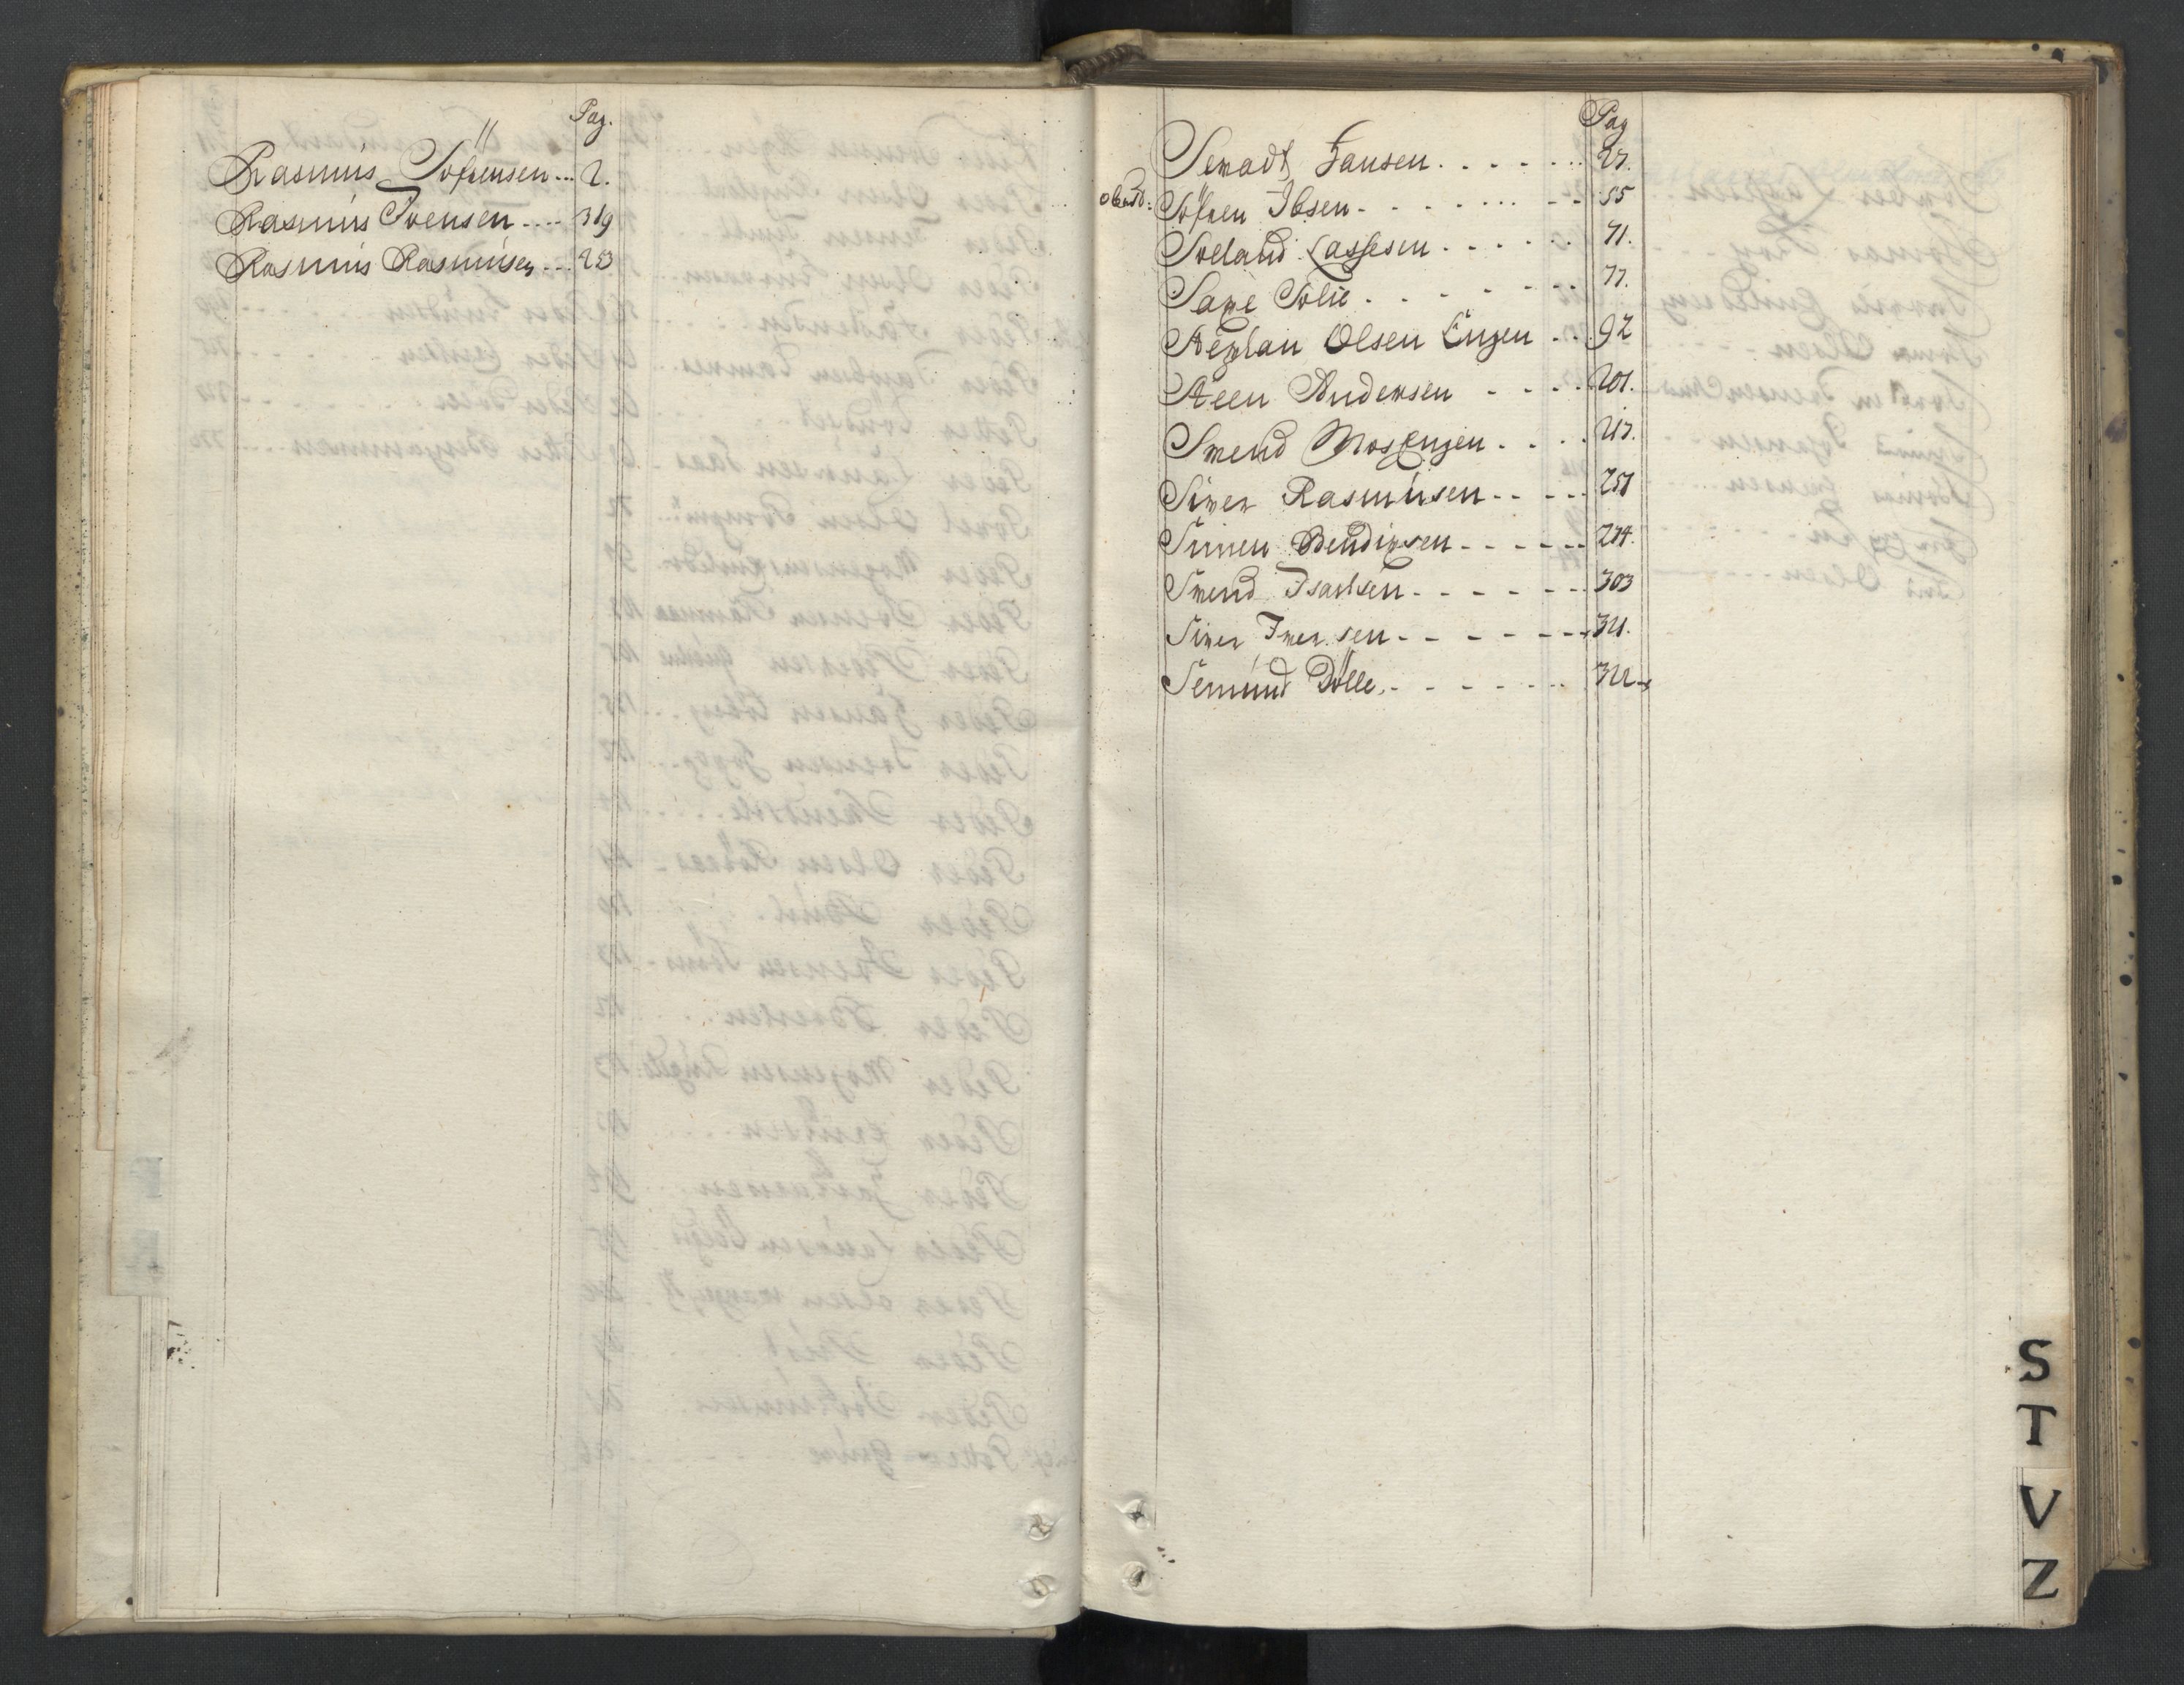 Pag.
Rasmus Söfrensen ... 2.
Rasmus Svensen .... 319
Rasmus Rasmusen ... 253
Pag
Siwadt Hansen . . . . . . 27.
Söfren Ibsen - - - - - - - 55
Soeland Lassesen . . . . . . 71.
Saxe Solie . - - - - - - 77.
Stephan Olsen Engen - . . 92
Steen Andersen - - - - 201.
Swend MosEngen . - . . 213.
Siwer Rasmusen - - - - - 257
Simen Bendixsen - - - - - - 274.
Swend Isachsen - - - - - - 303
Siwer Iwersen - - - - - - - 311.
Semund Dölle, - - - - - - - 312
S
T
V
Z